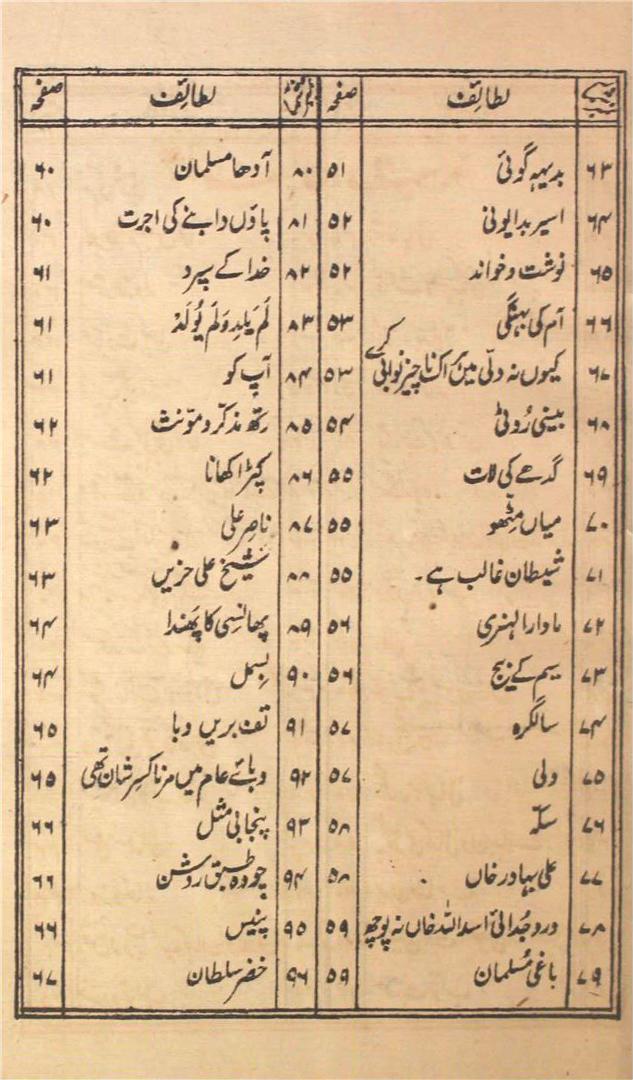 نمبر شمار لطائف صفحہ نمبر شمار لطائف صفحہ
۶۳ بدیہہ گوئی ۵۱ ۸۰ آدھا مسلمان ۶۰
۶۴ اسیر بدایونی ۵۲ ۸۱ پاؤں دابنے کی اجرت ۶۰
۶۵ نوشت و خواند ۵۲ ۸۲ خدا کے سپرد ۶۱
۶۶ آم کی بہنگی ۵۳ ۸۳ لَم یَلِد وَلَم یُولَد ۶۱
۶۷ کیوں نہ دلّی میں ہر اک ناچیز نوابی کرے ۵۳ ۸۴ آپ کو ۶۱
۶۸ بیسنی روٹی ۵۴ ۸۵ رتھ مذکّر و مؤنث ۶۲
۶۹ گدھے کی لات ۵۵ ۸۶ کپڑا کھانا ۶۲
۷۰ میاں مِٹّھو ۵۵ ۸۷ ناصر علی ۶۳
۷۱ شیطان غالب ہے۔ ۵۵ ۸۸ شیخ علی حزیں ۶۳
۷۲ ماوارا لنہری ۵۶ ۸۹ پھانسی کا پھَندا ۶۴
۷۳ سیم کے بیج ۵۶ ۹۰ بسمل ۶۴
۷۴ سالگرہ ۵۷ ۹۱ تف بریں وبا ۶۵
۷۵ ولی ۵۷ ۹۲ وبائے عام میں مرنا کسرِ شان تھی ۶۵
۷۶ سکّہ ۵۸ ۹۳ پنجابی مثل ۶۶
۷۷ علی بہادر خاں ۵۸ ۹۴ چودہ طبق روشن ۶۶
۷۸ درد جُدائیِ اسد اللہ خاں نہ پوچھ ۵۹ ۹۵ پنیس ۶۶
۷۹ باغی مُسلمان ۵۹ ۹۶ خضر سلطان ۶۷